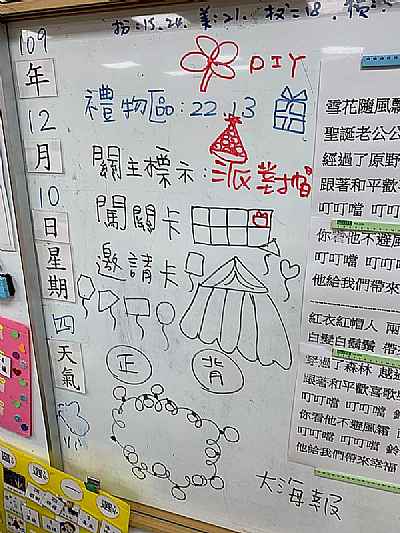 109
年
12
月
10
日
星
期
四
天
氣
DIY
禮物區:22.13
關主標示:派對帽
闖關卡
邀請卡
正 背
大海報
雪花隨風飄
聖誕老公公
經過了原野
跟著和平歡
叮叮噹 叮叮
你看他不避風
叮叮噹 叮叮
他給我們帶來
紅衣紅帽人 兩
白髮白鬍鬚 帶
穿過了森林 越過
跟著和平歡喜歌
叮叮噹 叮叮噹 鈴
你看他不避風霜
叮叮噹 叮叮噹 鈴
他給我們帶來幸福